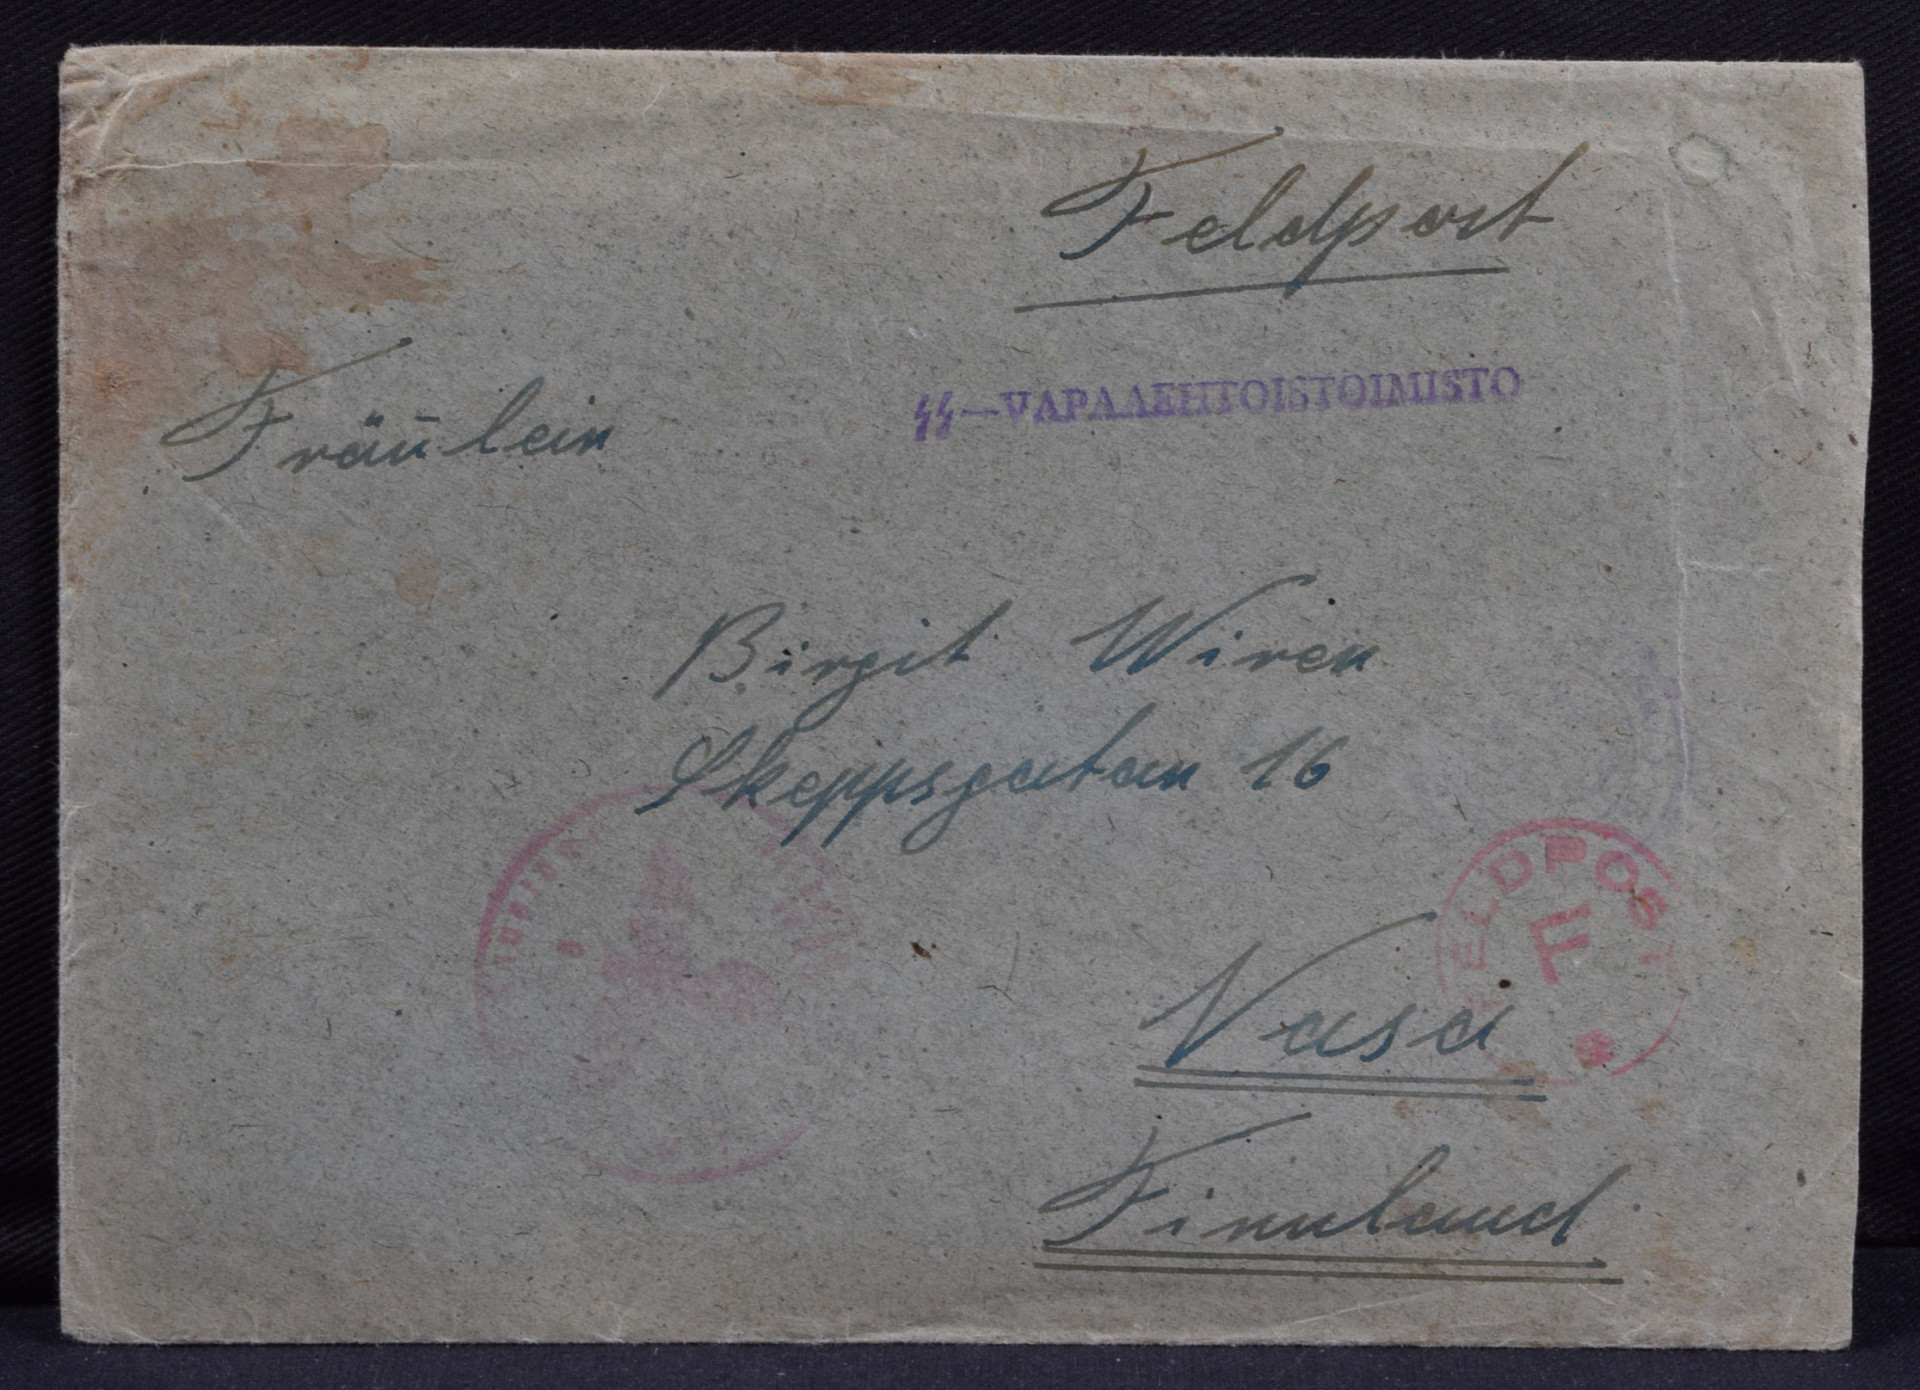 Feldpost
SS–VAPAAEHTOISTOIMISTO
Fräulein
Birgit Wiren
Skeppsgatan 16
FELDPOST
F
Vasa
Finnland